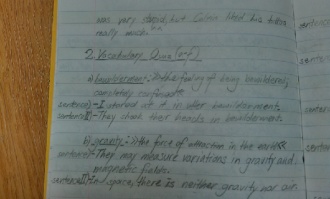 was very stupid, but                his
really much.
2. Vocabulary Quiz
a) bewilderment: the feeling of being bewildered,
completely confused.
sentence I - I          at it in utter bewilderment.
sentence II - They shook their heads in bewilderment.
b) gravity: the force of attraction in the earth
sentence I - They may measure variations in gravity and
magnetic fields.
sentence II - In space, there is neither gravity nor air.
sentence